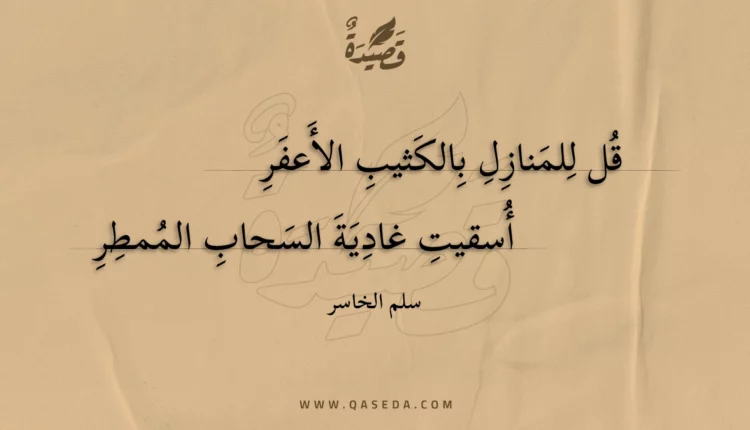 قَصِيدَةٌ
قُل لِلمَنازِلِ بِالكَثيبِ الأَعفَرِ
أُسقيتِ غادِيَةَ السَحابِ المُمطِرِ
سلم الخاسر
WWW.QASEDA.COM